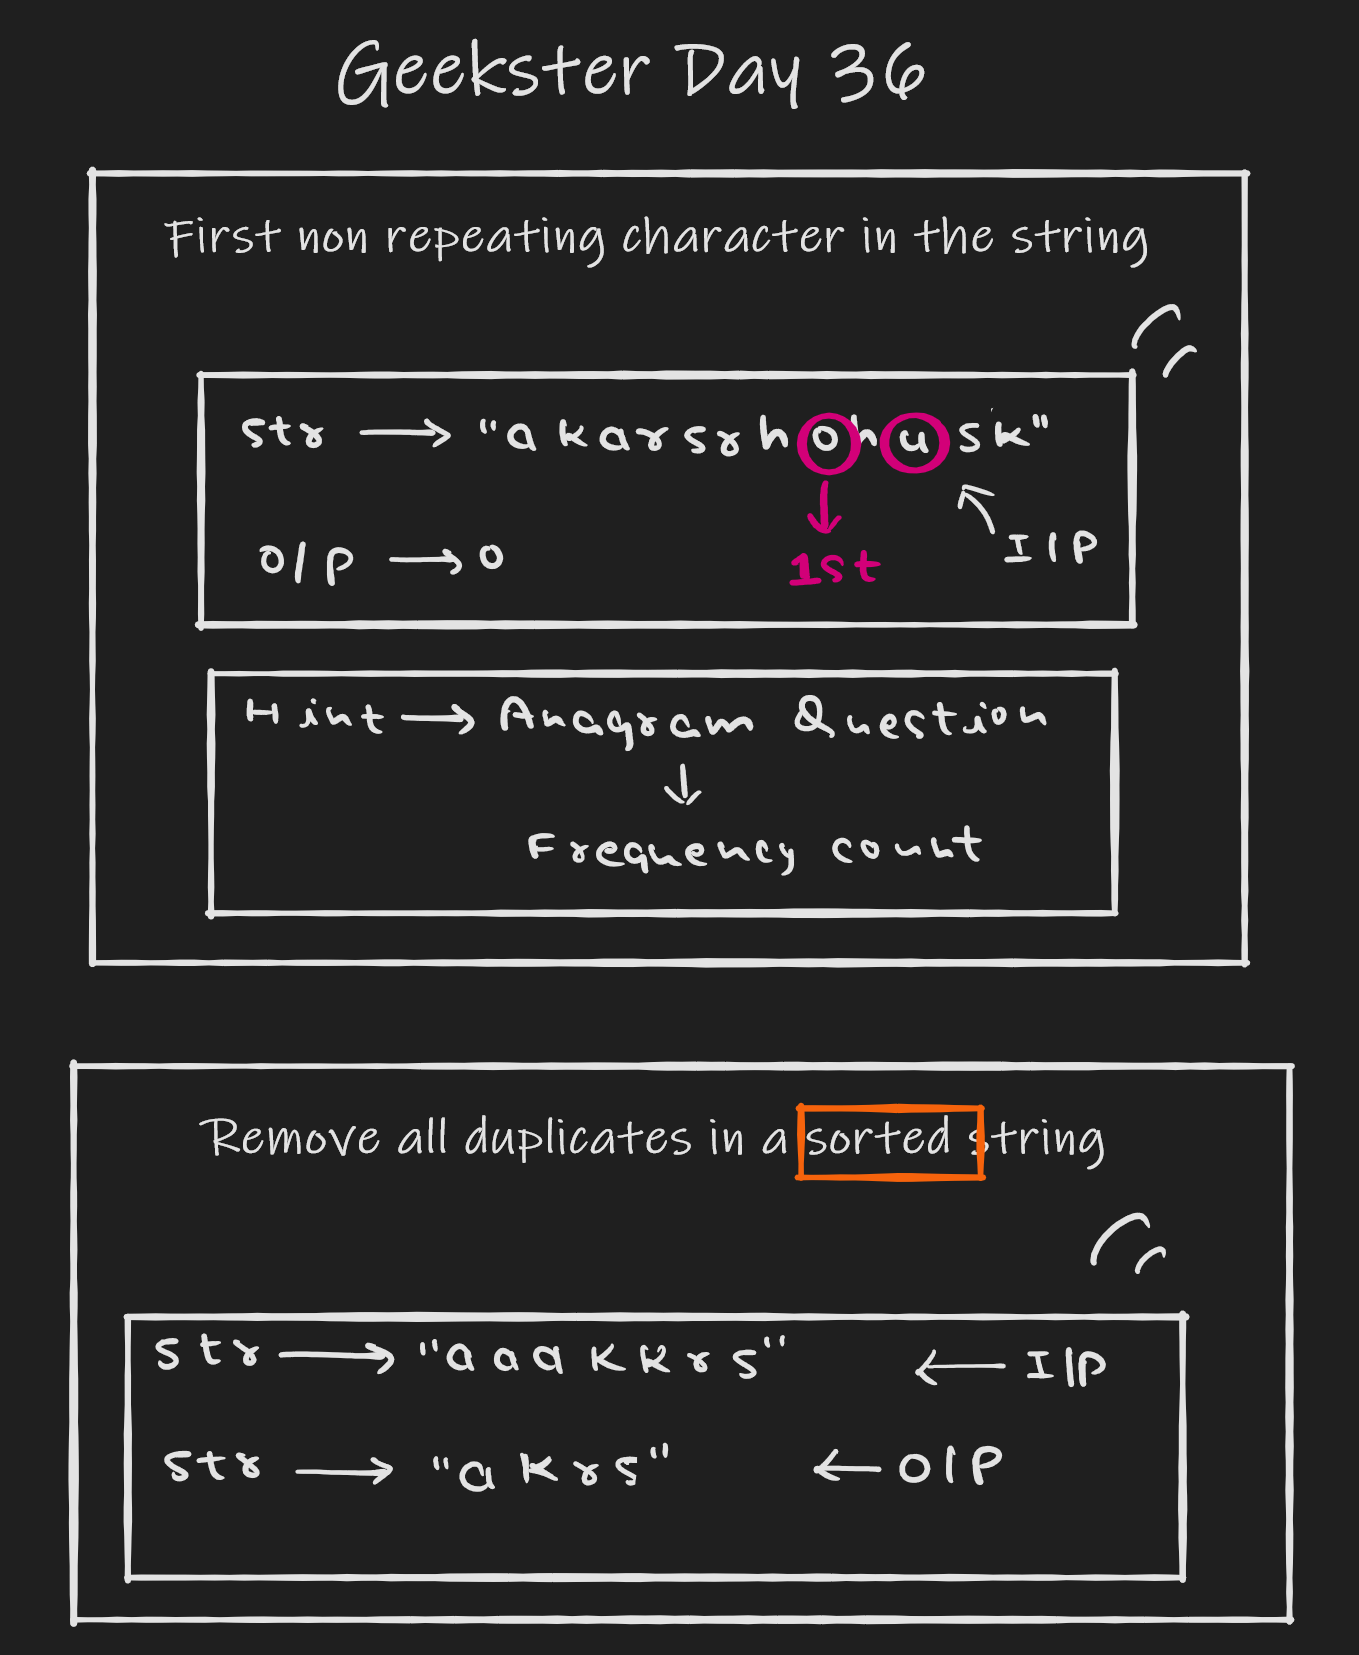 Geekster Day 36
First non repeating character in the string
str → "akarsrhohusk"
O/P → o
1st
I/P
Hint → Anagram Question
↓
Frequency count
Remove all duplicates in a sorted string
str → "aaakkrs" ← I/P
str → "akrs" ← O/P